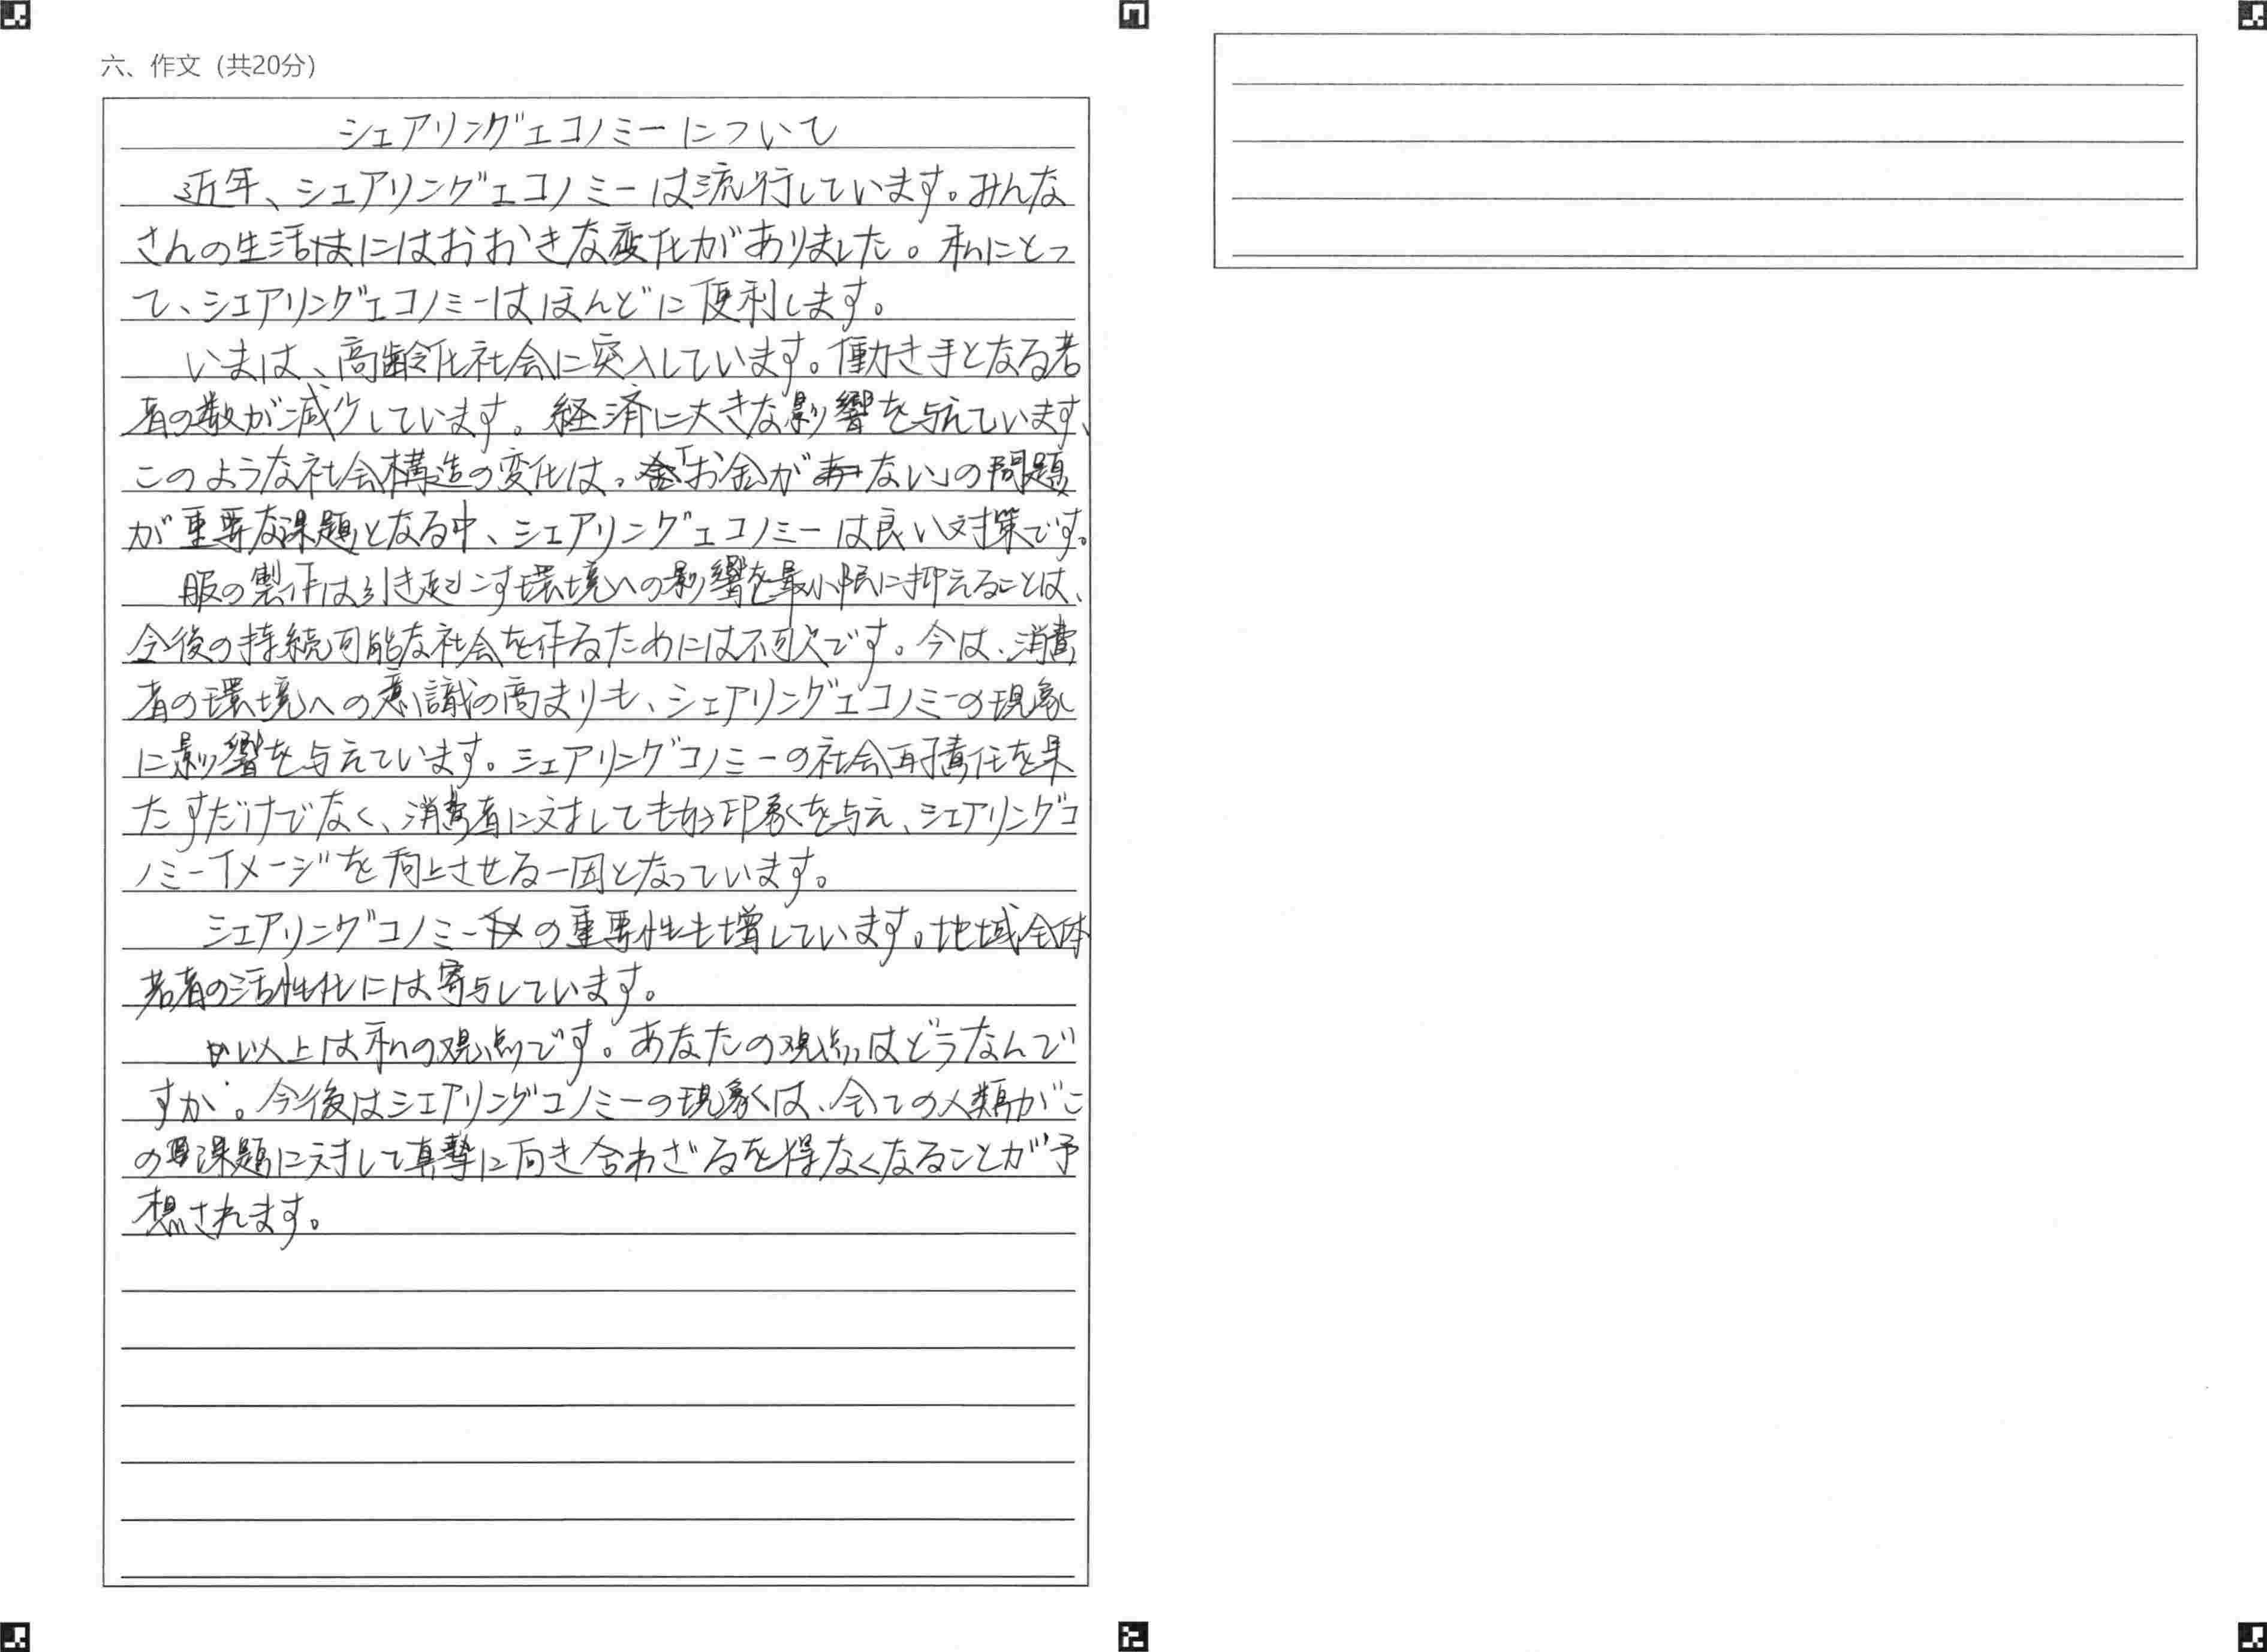 六、作文（共20分）
シェアリングエコノミーについて
近年、シェアリングエコノミーは流行しています。みんな
さんの生活にはおおきな変化がありました。私にとっ
て、シェアリングエコノミーはほんどに便利します。
いまは、高齢化社会に突入しています。働き手となる若
者の数が減少しています。経済に大きな影響を与えています、
このような社会構造の変化は。「お金がない」の問題
が重要な課題となる中、シェアリングエコノミーは良い対策です。
服の製作は引き起こす環境への影響を最小限に抑えることは、
今後の持続可能な社会を作るためには不可欠です。今は、消費
者の環境への意識の高まりも、シェアリングエコノミーの現象
に影響を与えています。シェアリングコノミーの社会責任を果
たすだけでなく、消費者に対しても好印象を与え、シェアリングコ
ノミーイメージを向上させる一因となっています。
シェアリングコノミーの重要性も増しています。地域全体
若者の活性化には寄与しています。
以上は私の観点です。あなたの観点はどうなんで
すか。今後はシェアリングコノミーの現象は、全ての人類がこ
の課題に対して真摯に向き合わざるを得なくなることが予
想されます。